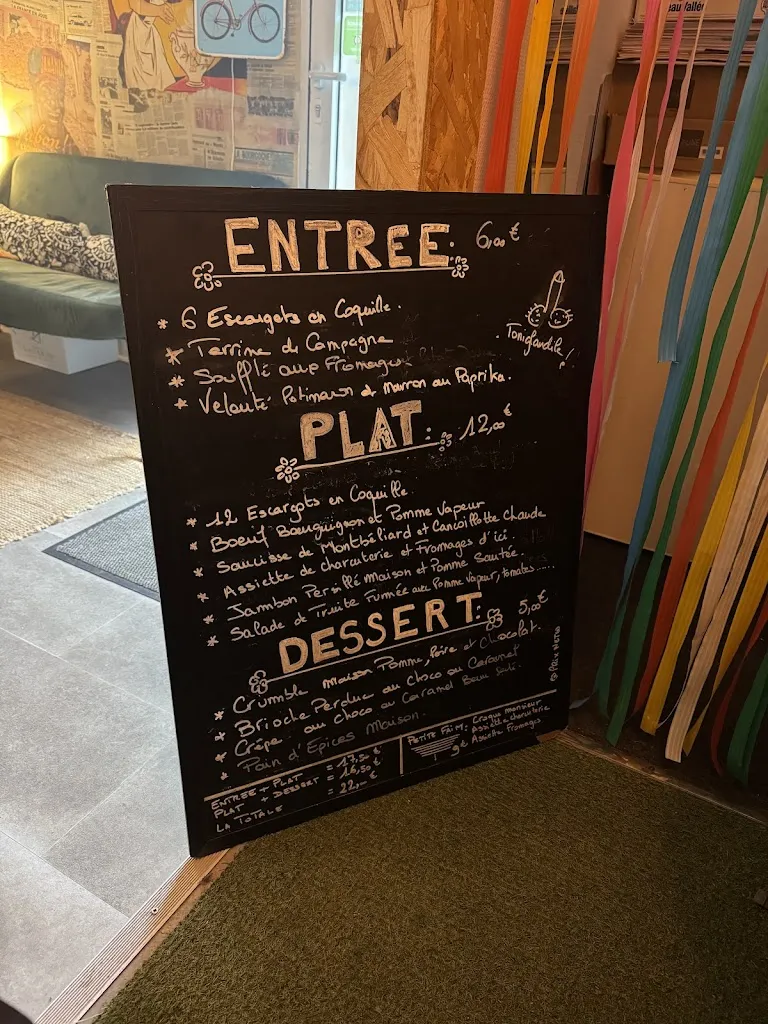 ENTREE. 6,00 €
* 6 Escargots en Coquille.
* Terrine de Campagne
* Soufflé aux Fromages
* Velouté Potimaron et Marron au Paprika.
PLAT: 12,00 €
* 12 Escargots en Coquille
* Boeuf Bourguignon et Pomme Vapeur
* Saucisse de Montbéliard et Cancoillotte Chaude
* Assiette de charcuterie et Fromages d'ici.
* Jambon Persillé Maison et Pomme Sautée.
* Salade de Truite Fumée aux Pomme Vapeur, tomates....
DESSERT: 5,00€
* Crumble Maison Pomme, Poire et Chocolat.
* Brioche Perdue au choco ou Caramel
* Crêpe au Choco ou Caramel Beurre Salé.
* Pain d'Epices Maison.
ENTREE + PLAT = 17,50 €
PLAT + DESSERT = 16,50 €
LA TOTALE = 22,-- €
PETITE FAIM: Croque monsieur
Assiette charcuterie
9€ Assiette Fromages